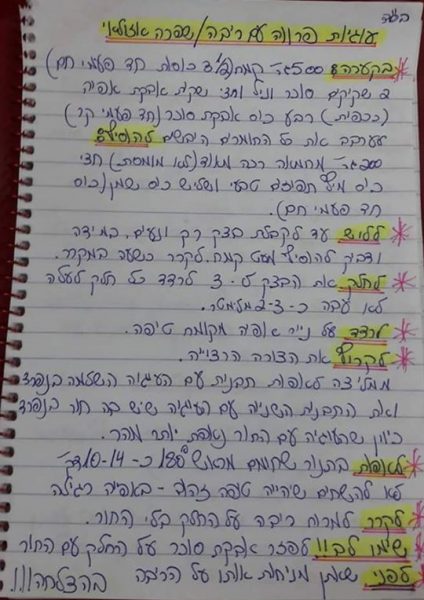 בס"ד
עוגיות פרווה עם ריבה/שפרה אזולאי
בקערה: 500 גר' קמח (3/5 כוסות חד פעמי חם)
2 שקיקים סוכר וניל וחצי שקית אבקת אפיה
(ככפית) רבע כוס אבקת סוכר (חד פעמי קר)
לערבב את כל החומרים היבשים להוסיף:
200 גר' מחמאה רכה מאוד (לא מומסת) חצי
כוס מיץ תפוזים טבעי ושליש כוס שמן (כוס
חד פעמי חם).
ללוש עד לקבלת בצק רך ונעים. במידה
ודביק להוסיף מעט קמח. לקרר כשעה במקרר.
לחלק את הבצק ל-3 לרדד כל חלק לעלה
לא עבה כ-2-3 מילימטר.
לרדד על נייר אפיה מקומח טיפה.
לקרוץ את הצורה הרצוייה.
ממליצה לאפות תבנית עם העוגיה השלמה בנפרד
ואת התבנית השניה עם העוגיה שיש בה חור בנפרד
כיוון שהעוגיה עם החור נאפת יותר מהר.
לאפות בתנור שחומם מראש 180° כ-10-14 דק'
לא להשחים שיהייה טיפה זהוב - באפיה רגילה
לקרר למרוח ריבה על החלק בלי החור.
שימו לב!! לפזר אבקת סוכר על החלק עם החור
לפני שאתן מניחות אותו על הריבה בהצלחה!!!